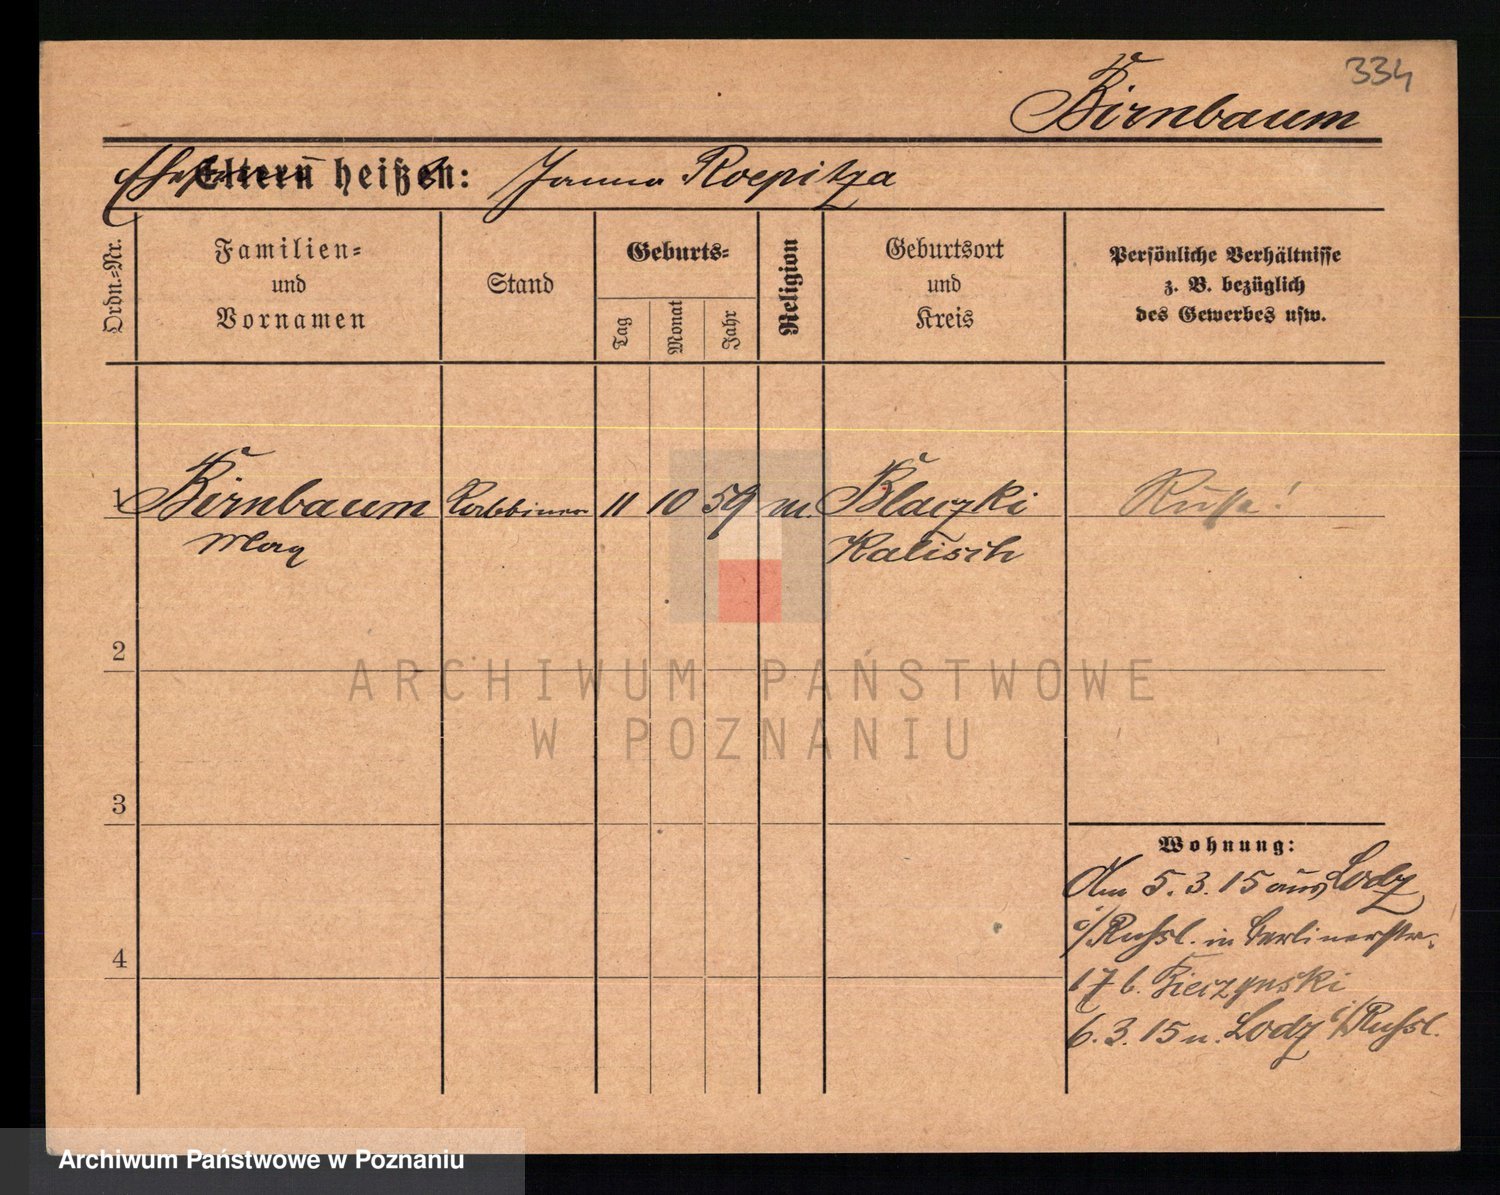 334
Birnbaum
Eltern heißen: Roepitza
Ordn.-Nr.
Familien-
und
Vornamen
Stand
Geburts-
Tag
Monat
Jahr
Religion
Geburtsort
und
Kreis
Persönliche Verhältnisse
z. B. bezüglich
des Gewerbes usw.
1 Birnbaum Rabbiner 11 10 59 m. Blaczki Russe!
Kalisch
2
ARCHIWUM PAŃSTWOWE
W POZNANIU
3
Wohnung:
Am 5.3.15 aus Lodz
i/Russl. in Berlinerstr.
17 b.
6.3.15 n. Lodz i/Russl.
4
Archiwum Państwowe w Poznaniu